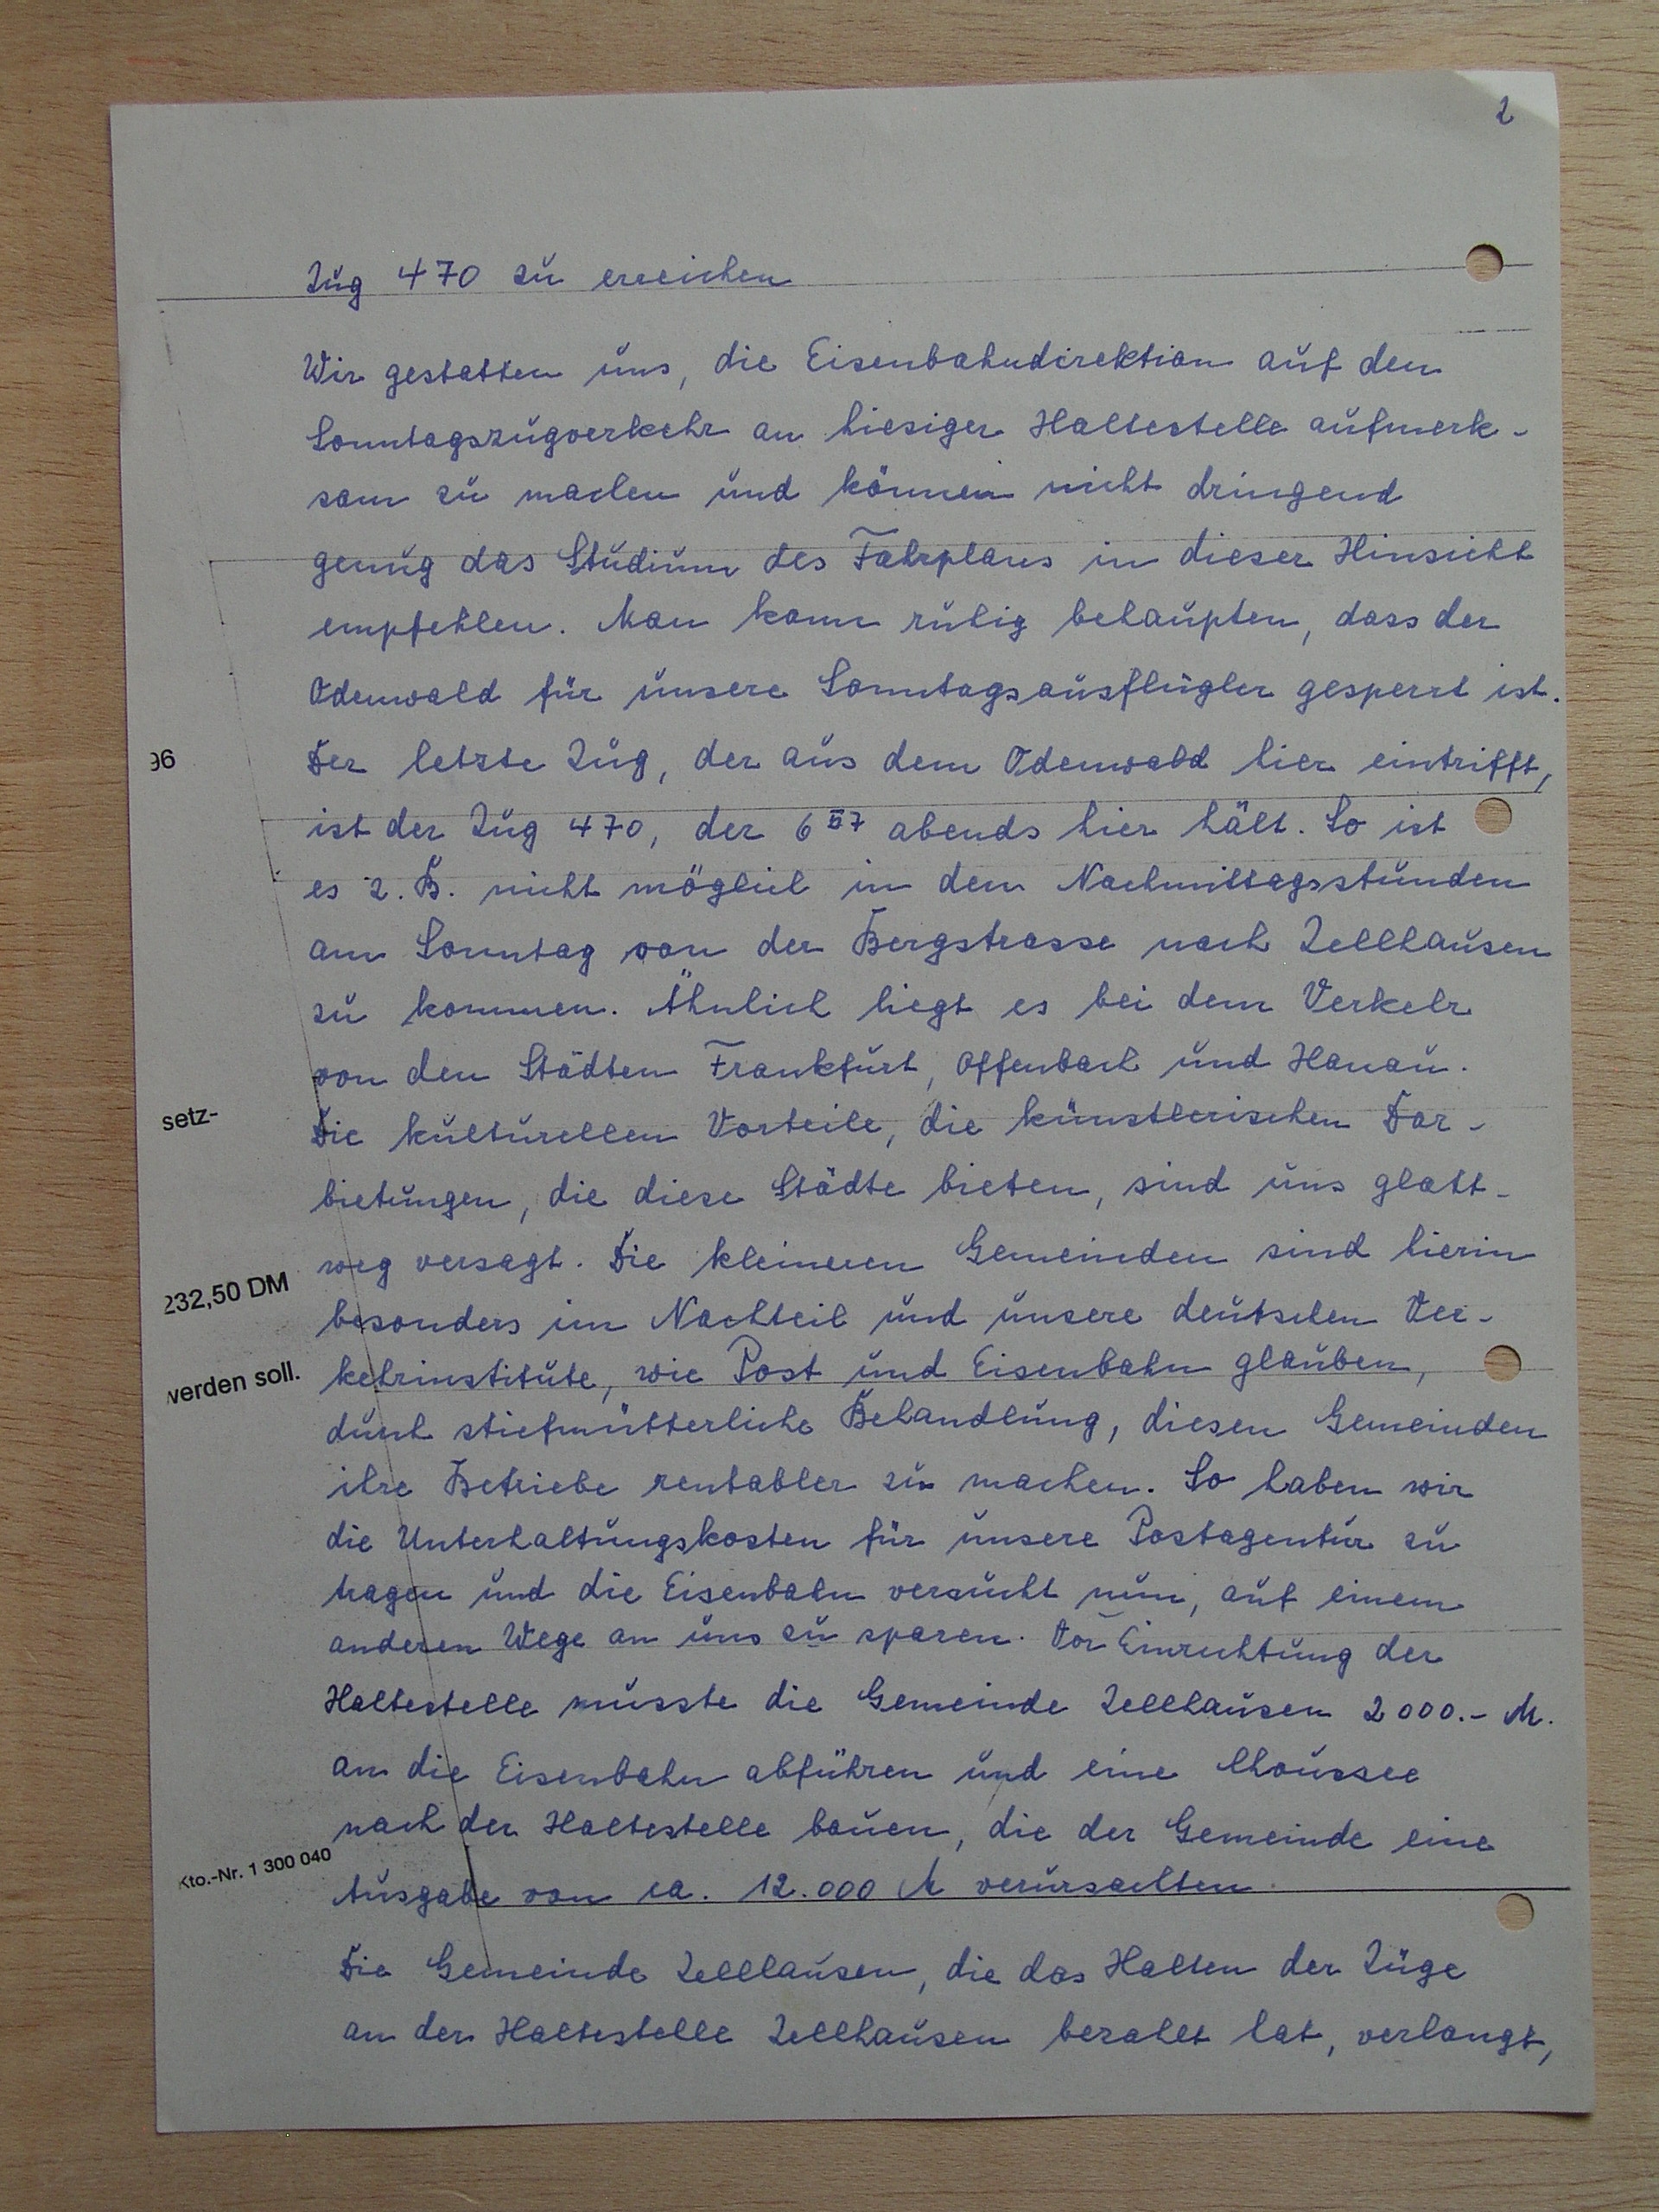 2
Zug 470 zu erreichen
Wir gestatten uns, die Eisenbahndirektion auf den
Sonntagszugverkehr an hiesiger Haltestelle aufmerk-
sam zu machen und können nicht dringend
genug das Studium des Fahrplans in dieser Hinsicht
empfehlen. Man kann ruhig behaupten, dass der
Odenwald für unsere Sonntagsausflügler gesperrt ist.
96
Der letzte Zug, der aus dem Odenwald hier eintrifft,
ist der Zug 470, der 6 abends hier hält. So ist
es z. B. nicht möglich in den Nachmittagsstunden
am Sonntag von der Bergstrasse nach Zellhausen
zu kommen. Ähnlich liegt es bei dem Verkehr
von den Städten Frankfurt, Offenbach und Hanau.
setz-
Die kulturellen Vorteile, die künstlerischen Dar-
bietungen, die diese Städte bieten, sind uns glatt-
weg versagt. Die kleineren Gemeinden sind hierin
232,50 DM
besonders im Nachteil und unsere deutschen Ver-
werden soll.
kehrinstitute, wie Post und Eisenbahn glauben,
durch stiefmütterliche Behandlung, diesen Gemeinden
ihre Betriebe rentabler zu machen. So haben wir
die Unterhaltungskosten für unsere Postagentur zu
tragen und die Eisenbahn versucht nun, auf einem
anderen Wege an uns zu sparen. Vor Einrichtung der
Haltestelle musste die Gemeinde Zellhausen 2000.- M.
an die Eisenbahn abführen und eine Chaussee
nach der Haltestelle bauen, die der Gemeinde eine
Kto.-Nr. 1 300 040
Ausgabe von ca. 12.000 M verursachten.
Die Gemeinde Zellhausen, die das Halten der Züge
an der Haltestelle Zellhausen bezahlt hat, verlangt,